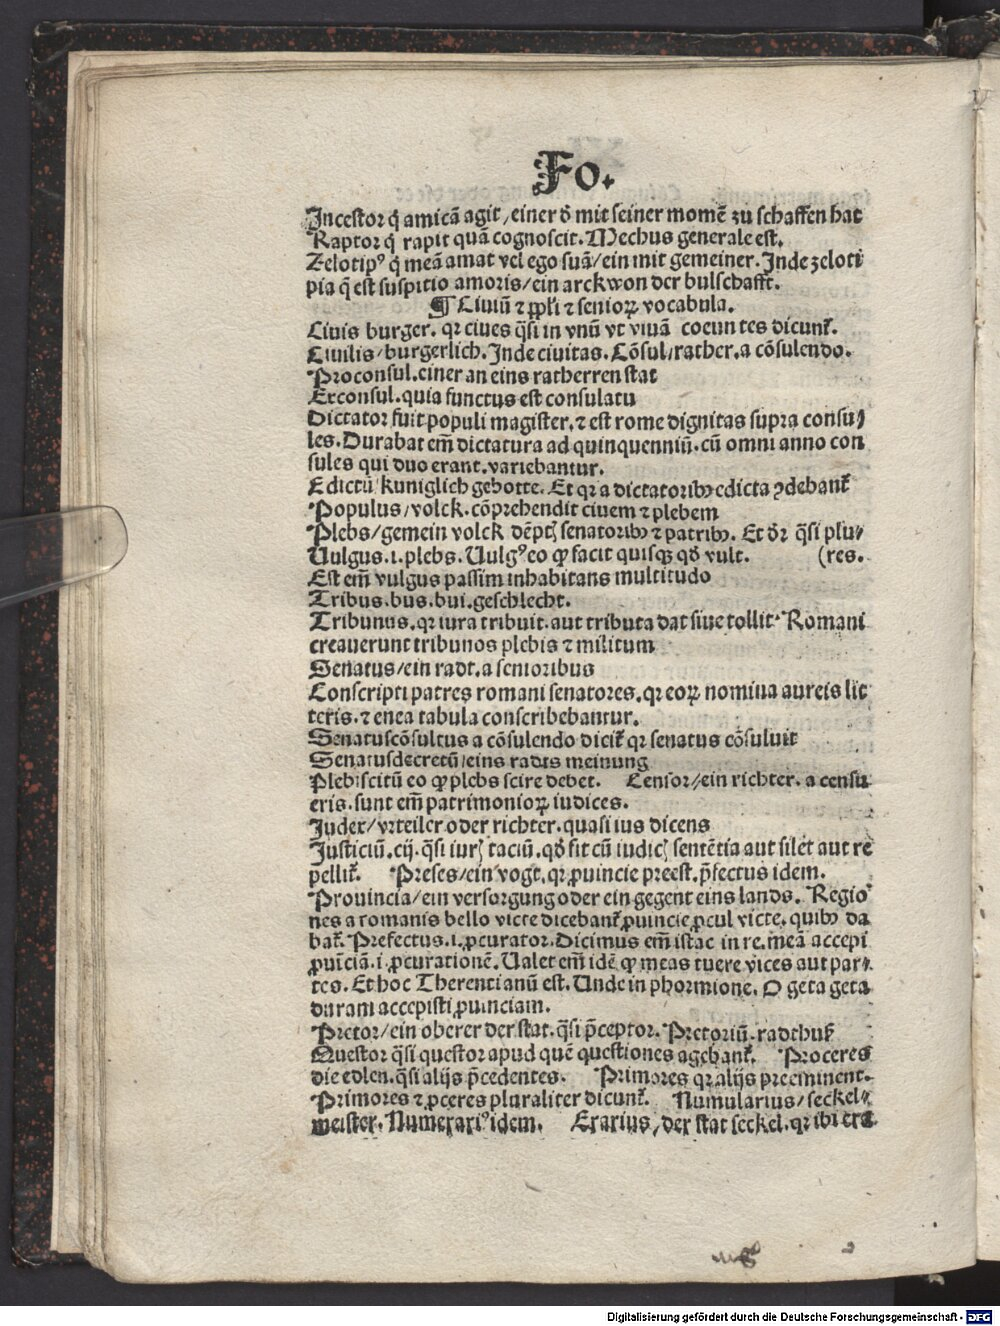 Fo.
Incestor q̇ amicā agit/einer ď mit seiner momē zu schaffen hat
Raptor q̇ rapit quā cognoscit. Mechus generale est.
Zelotipꝰ q̇ meā amat vel ego suā/ein mit gemeiner. Inde zeloti
pia q̄ est suspitio amoris/ein arckwon der bulschafft.
¶ Ciuiū ⁊ ꝓpl̓i ⁊ senioꝝ vocabula.
Ciuis burger. qꝛ ciues q̄si in vnū vt viuā coeuntes dicunt̄.
Ciuilis/burgerlich. Inde ciuitas. Cōsul/rather. a cōsulendo.
Proconsul. einer an eins ratherren stat
Exconsul. quia functus est consulatu
Dictator fuit populi magister. ⁊ est rome dignitas supra consu⸗
les. Durabat em̄ dictatura ad quinquenniū. cū omni anno con
sules qui duo erant. variebantur.
Edictū kuniglich gebotte. Et qꝛ a dictatoribꝫ edicta ꝯdebant̄
Populus/volck. cōprehendit ciuem ⁊ plebem
Plebs/gemein volck dēptꝭ senatoribꝫ ⁊ patribꝫ. Et dr̄ q̄si plu⸗
Uulgus. i. plebs. Uulgꝰ eo ꝙ facit quisqꝫ qď vult. (res.
Est em̄ vulgus passim inhabitans multitudo
Tribus. bus. bui. geschlecht.
Tribunus. qꝛ iura tribuit. aut tributa dat siue tollit. Romani
creauerunt tribunos plebis ⁊ militum
Senatus/ein radt. a senioribus
Conscripti patres romani senatores. qꝛ eoꝝ nomina aureis lit
teris. ⁊ enea tabula conscribebantur.
Senatuscōsultus a cōsulendo dicit̄ qꝛ senatus cōsuluit
Senatusdecretū/eins radts meinung
Plebiscitū eo ꝙ plebs scire debet. Censor/ein richter. a censu
eris. sunt em̄ patrimonioꝝ iudices.
Iudex/vrteiler oder richter. quasi ius dicens
Iusticiū. cij. q̄si iurꝭ taciū. qď fit cū iudicꝭ sentētia aut silet aut re
pellit̄. Preses/ein vogt. qꝛ ꝓuincie preest. p̄fectus idem.
Prouincia/ein versorgung oder ein gegent eins lands. Regio
nes a romanis bello victe dicebant̄ ꝓuincie ꝓcul victe. quibꝫ da
bat̄. Prefectus. i. ꝓcurator. Dicimus em̄ istac in re. meā accepi
ꝓuīciā. i. ꝓcurationē. Ualet em̄ idē ꝙ meas tuere vices aut par⸗
tes. Et hoc Therentianū est. Unde in phormione. O geta geta
duram accepisti ꝓuinciam.
Pretor/ein oberer der stat. q̄si p̄ceptor. Pretoriū. radthuß
Questor q̄si questor apud quē questiones agebant̄. Proceres
die edlen. q̄si alijs p̄cedentes. Primores qꝛ alijs preeminent.
Primores ⁊ ꝓceres pluraliter dicunt̄. Numularius/seckel⸗
meister. Numerariꝰ idem. Erarius/der stat seckel. qꝛ ibi era
Digitalisierung gefördert durch die Deutsche Forschungsgemeinschaft - DFG